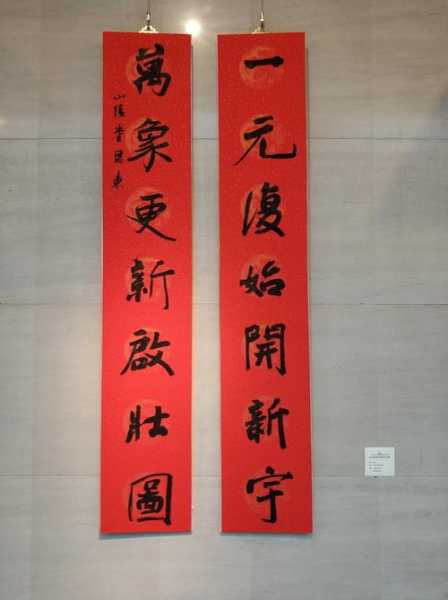 一元復始開新宇
萬象更新啟壯圖